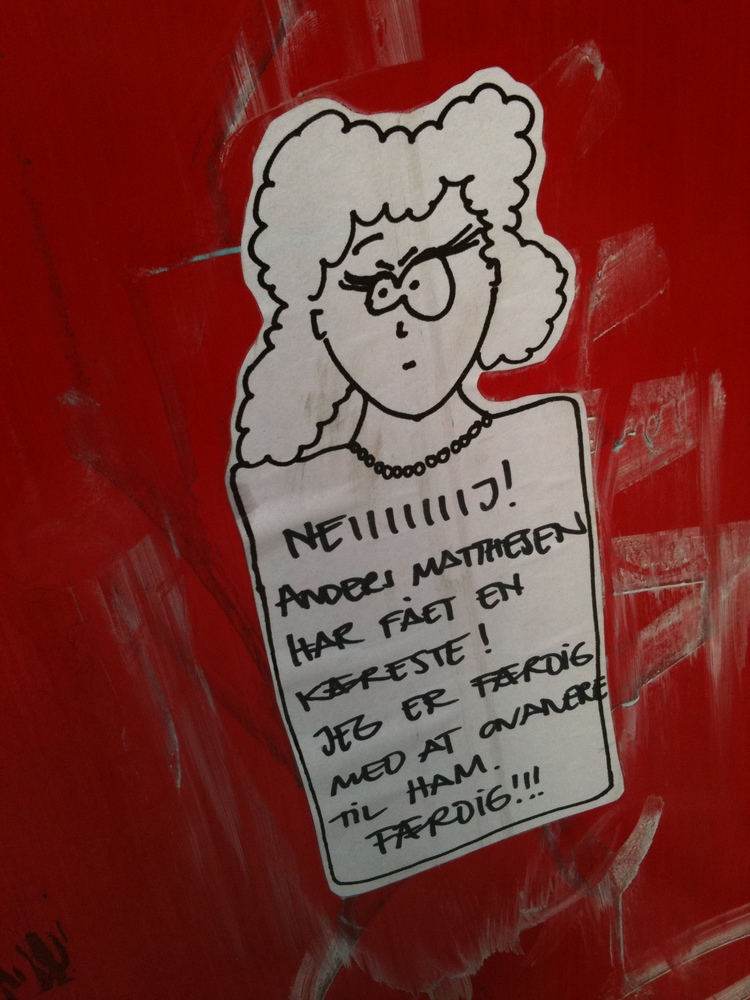 NEIIIIIIIIJ!
ANDERS MATTHESEN
HAR FÅET EN
KÆRESTE!
JEG ER FÆRDIG
MED AT ONANERE
TIL HAM.
FÆRDIG!!!